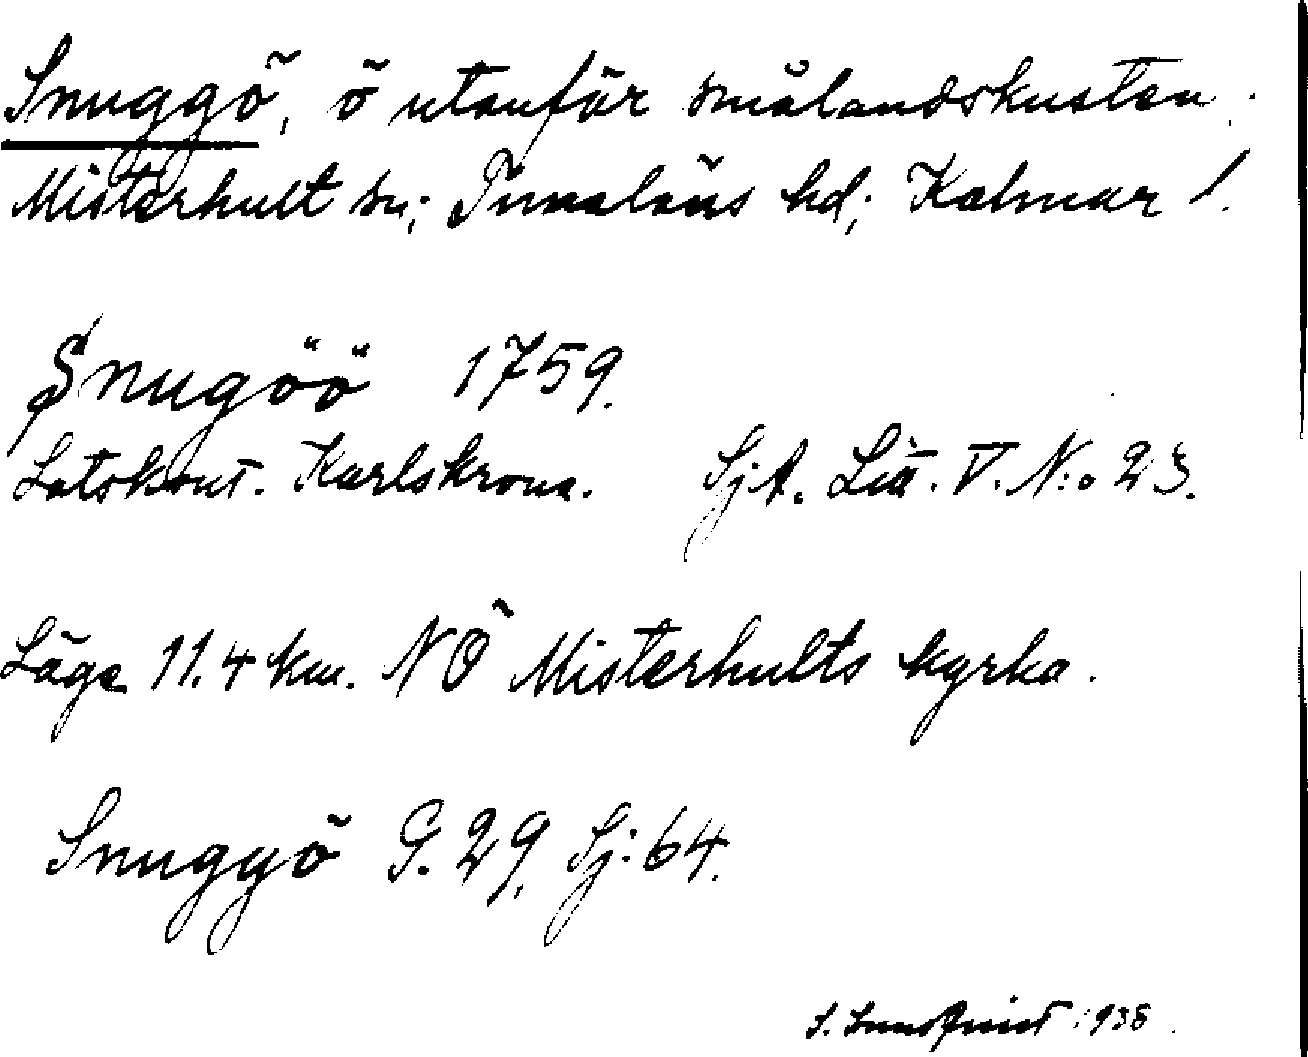 Snuggö, ö utanför smålandskusten.
Misterhult sn; Tunaläns hd; Kalmar l.
Snugöö 1759.
Lotskont. Karlskrona. Sj.A. Litt. V. N:o 23.
Läge 11.4 km. NÖ Misterhults kyrka.
Snuggö G. 29, Sj: 64.
S. 1938.